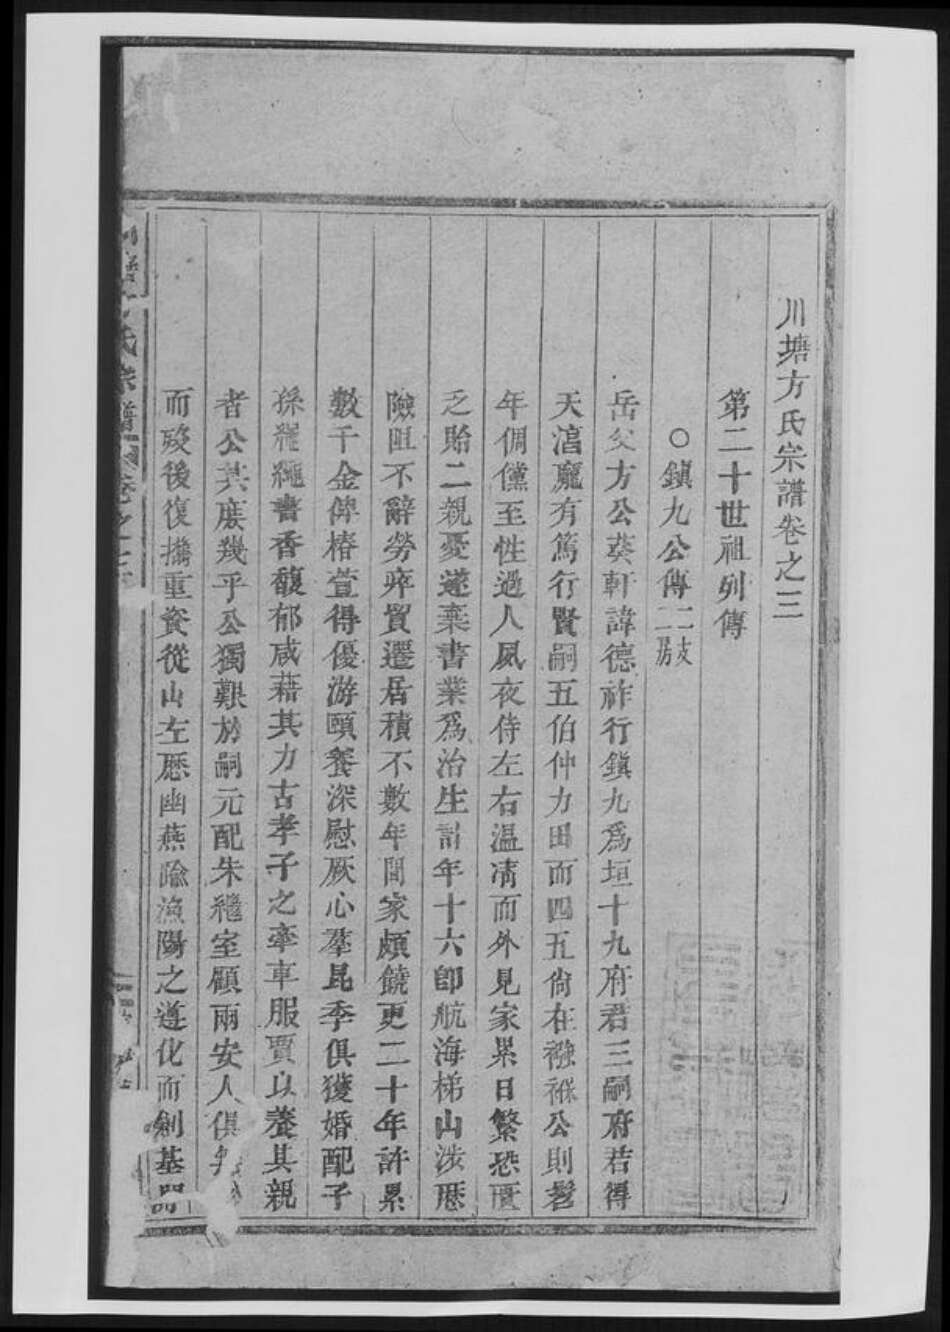 川塘方氏宗譜卷之三
第二十世祖列傳
○鎮九公傳二房支
岳父方公葵軒諱德祚行鎮九爲垣十九府君三嗣府君得
天湻龐有篤行賢嗣五伯仲力田而四五尙在襁褓公則髫
年倜儻至性過人夙夜侍左右温凊而外見家累日繁恐匱
乏貽二親憂遂棄書業爲治生計年十六卽航海梯山涉歷
險阻不辭勞瘁貿遷居積不數年間家頗饒更二十年許累
數千金俾椿萱得優游頤養深慰厥心羣昆季俱獲婚配子
孫繩繩書香馥郁咸藉其力古孝子之牽車服賈以養其親
者公其庶幾乎公獨艱於嗣元配朱繼室顧兩安人俱
而歿後復攜重資從山左歷幽燕踰漁陽之遵化而創基開
氏宗譜 卷之